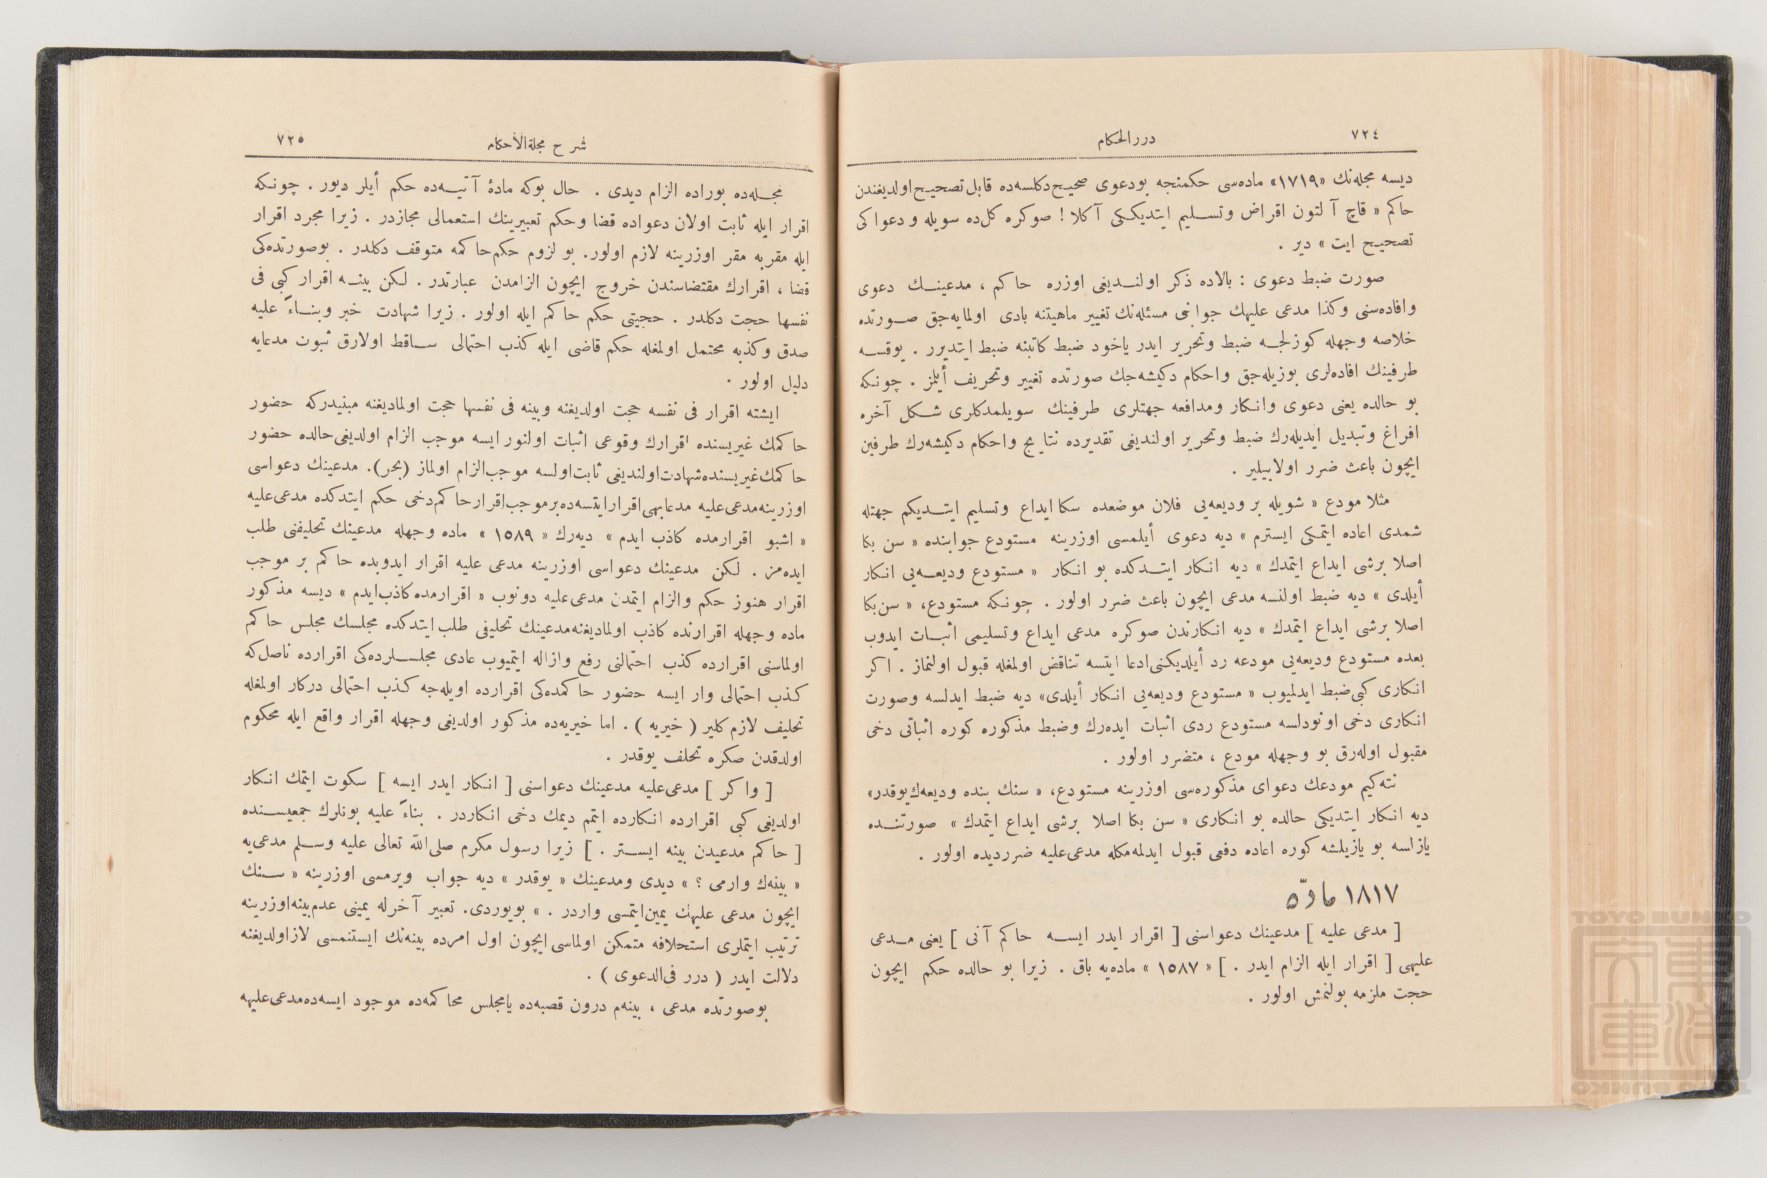 ٧٢٤
دررالحكام
ديسه مجله‌نك «١٧١٩» ماده‌سى حكمنجه بودعوى صحيح دكلسه‌ده قابل تصحيح اولديغندن
حاكم « قاچ آلتون اقراض وتسليم ايتديككى آكلا ! صوكره كل‌ده سويله و دعواكى
تصحيح ايت » دير .
صورت ضبط دعوى : بالاده ذكر اولنديغى اوزره حاكم ، مدعينك دعوى
وافاده‌سنى وكذا مدعى عليهك جوابنى مسئله‌نك تغيير ماهيتنه بادى اولمايه‌جق صورتده
خلاصه وجهله كوزلجه ضبط وتحرير ايدر ياخود ضبط كاتبنه ضبط ايتديرر . يوقسه
طرفينك افاده‌لرى بوزيله‌جق واحكام دكيشه‌جك صورتده تغيير وتحريف أيلمز . چونكه
بو حالده يعنى دعوى وانكار ومدافعه جهتلرى طرفينك سويلمدكلرى شكل آخره
افراغ وتبديل ايديله‌رك ضبط وتحرير اولنديغى تقديرده نتايج واحكام دكيشه‌رك طرفين
ايچون باعث ضرر اولابيلير .
مثلا مودع « شويله بر وديعه‌يى فلان موضعده سكا ايداع وتسليم ايتديكم جهتله
شمدى اعاده ايتمكى ايسترم » ديه دعوى أيلمسى اوزرينه مستودع جوابنده « سن بكا
اصلا برشى ايداع ايتمدك » ديه انكار ايتدكده بو انكار « مستودع وديعه‌يى انكار
أيلدى » ديه ضبط اولنسه مدعى ايچون باعث ضرر اولور . چونكه مستودع، « سن بكا
اصلا برشى ايداع ايتمدك » ديه انكارندن صوكره مدعى ايداع وتسليمى اثبات ايدوب
بعده مستودع وديعه‌يى مودعه رد أيلديكنى ادعا ايتسه تناقض اولمغله قبول اولنماز . اكر
انكارى كبى ضبط ايدلميوب « مستودع وديعه‌يى انكار أيلدى» ديه ضبط ايدلسه وصورت
انكارى دخى اونودلسه مستودع ردى اثبات ايده‌رك وضبط مذكوره كوره اثباتى دخى
مقبول اوله‌رق بو وجهله مودع ، متضرر اولور .
نته‌كيم مودعك دعواى مذكوره‌سى اوزرينه مستودع، « سنك بنده وديعه‌ك يوقدر»
ديه انكار ايتديكى حالده بو انكارى « سن بكا اصلا برشى ايداع ايتمدك » صورتنده
يازلسه بو يازيلشه كوره اعاده دفعى قبول ايدلمه‌مكله مدعى‌عليه ضررديده اولور .
١٨١٧ ماده
[ مدعى عليه ] مدعينك دعواسنى [ اقرار ايدر ايسه حاكم آنى ] يعنى مدعى
عليهى [ اقرار ايله الزام ايدر . ] « ١٥٨٧ » ماده‌يه باق . زيرا بو حالده حكم ايچون
حجت ملزمه بولنمش اولور .
شرح مجلةالأحكام
٧٢٥
مجله‌ده بوراده الزام ديدى . حال بوكه مادهٔ آتيه‌ده حكم أيلر ديور . چونكه
اقرار ايله ثابت اولان دعواده قضا وحكم تعبيرينك استعمالى مجازدر . زيرا مجرد اقرار
ايله مقربه مقر اوزرينه لازم اولور. بو لزوم حكم حاكمه متوقف دكلدر . بوصورتده‌كى
قضا ، اقرارك مقتضاسندن خروج ايچون الزامدن عبارتدر . لكن بينه اقرار كبى فى
نفسها حجت دكلدر . حجيتى حكم حاكم ايله اولور . زيرا شهادت خبر وبناءً عليه
صدق وكذبه محتمل اولمغله حكم قاضى ايله كذب احتمالى ساقط اولارق ثبوت مدعايه
دليل اولور .
ايشته اقرار فى نفسه حجت اولديغنه وبينه فى نفسها حجت اولماديغنه مبنيدركه حضور
حاكمك غيريسنده اقرارك وقوعى اثبات اولنور ايسه موجب الزام اولديغى حالده حضور
حاكمك غيريسنده شهادت اولنديغى ثابت اولسه موجب الزام اولماز (بحر). مدعينك دعواسى
اوزرينه مدعى‌عليه مدعابهى اقرار ايتسه‌ده بر موجب اقرار حاكم دخى حكم ايتدكده مدعى‌عليه
« اشبو اقرارمده كاذب ايدم » ديه‌رك « ١٥٨٩ » ماده وجهله مدعينك تحليفنى طلب
ايده‌مز . لكن مدعينك دعواسى اوزرينه مدعى عليه اقرار ايدوبده حاكم بر موجب
اقرار هنوز حكم والزام ايتمدن مدعى‌عليه دونوب « اقرارمده كاذب ايدم » ديسه مذكور
ماده وجهله اقرارنده كاذب اولماديغنه مدعينك تحليفى طلب ايتدكده مجلسك مجلس حاكم
اولماسنى اقرارده كذب احتمالنى رفع وازاله ايتميوب عادى مجلسلرده‌كى اقرارده ناصل‌كه
كذب احتمالى وار ايسه حضور حاكمده‌كى اقرارده اويله‌جه كذب احتمالى دركار اولمغله
تحليف لازم كلير ( خيريه ) . اما خيريه‌ده مذكور اولديغى وجهله اقرار واقع ايله محكوم
اولدقدن صكره تحلف يوقدر .
[ واكر ] مدعى‌عليه مدعينك دعواسنى [ انكار ايدر ايسه ] سكوت ايتمك انكار
اولديغى كبى اقرارده انكارده ايتمم ديمك دخى انكاردر . بناءً عليه بونلرك جمعيسنده
[ حاكم مدعيدن بينه ايستر . ] زيرا رسول مكرم صلى‌الله تعالى عليه وسلم مدعى‌يه
« بينه‌ك وارمى ؟ » ديدى ومدعينك « يوقدر » ديه جواب ويرمسى اوزرينه « سنك
ايچون مدعى عليهك يمين ايتمسى واردر . » بويوردى. تعبير آخرله يمينى عدم بينه اوزرينه
ترتيب ايتملرى استحلافه متمكن اولماسى ايچون اول امرده بينه‌نك ايستنمسى لازاولديغنه
دلالت ايدر ( درر فى‌الدعوى ) .
بوصورتده مدعى ، بينه‌م درون قصبه‌ده يامجلس محاكمه‌ده موجود ايسه‌ده مدعى‌عليهه
TOYO BUNKO
東洋文庫
TOYO BUNKO